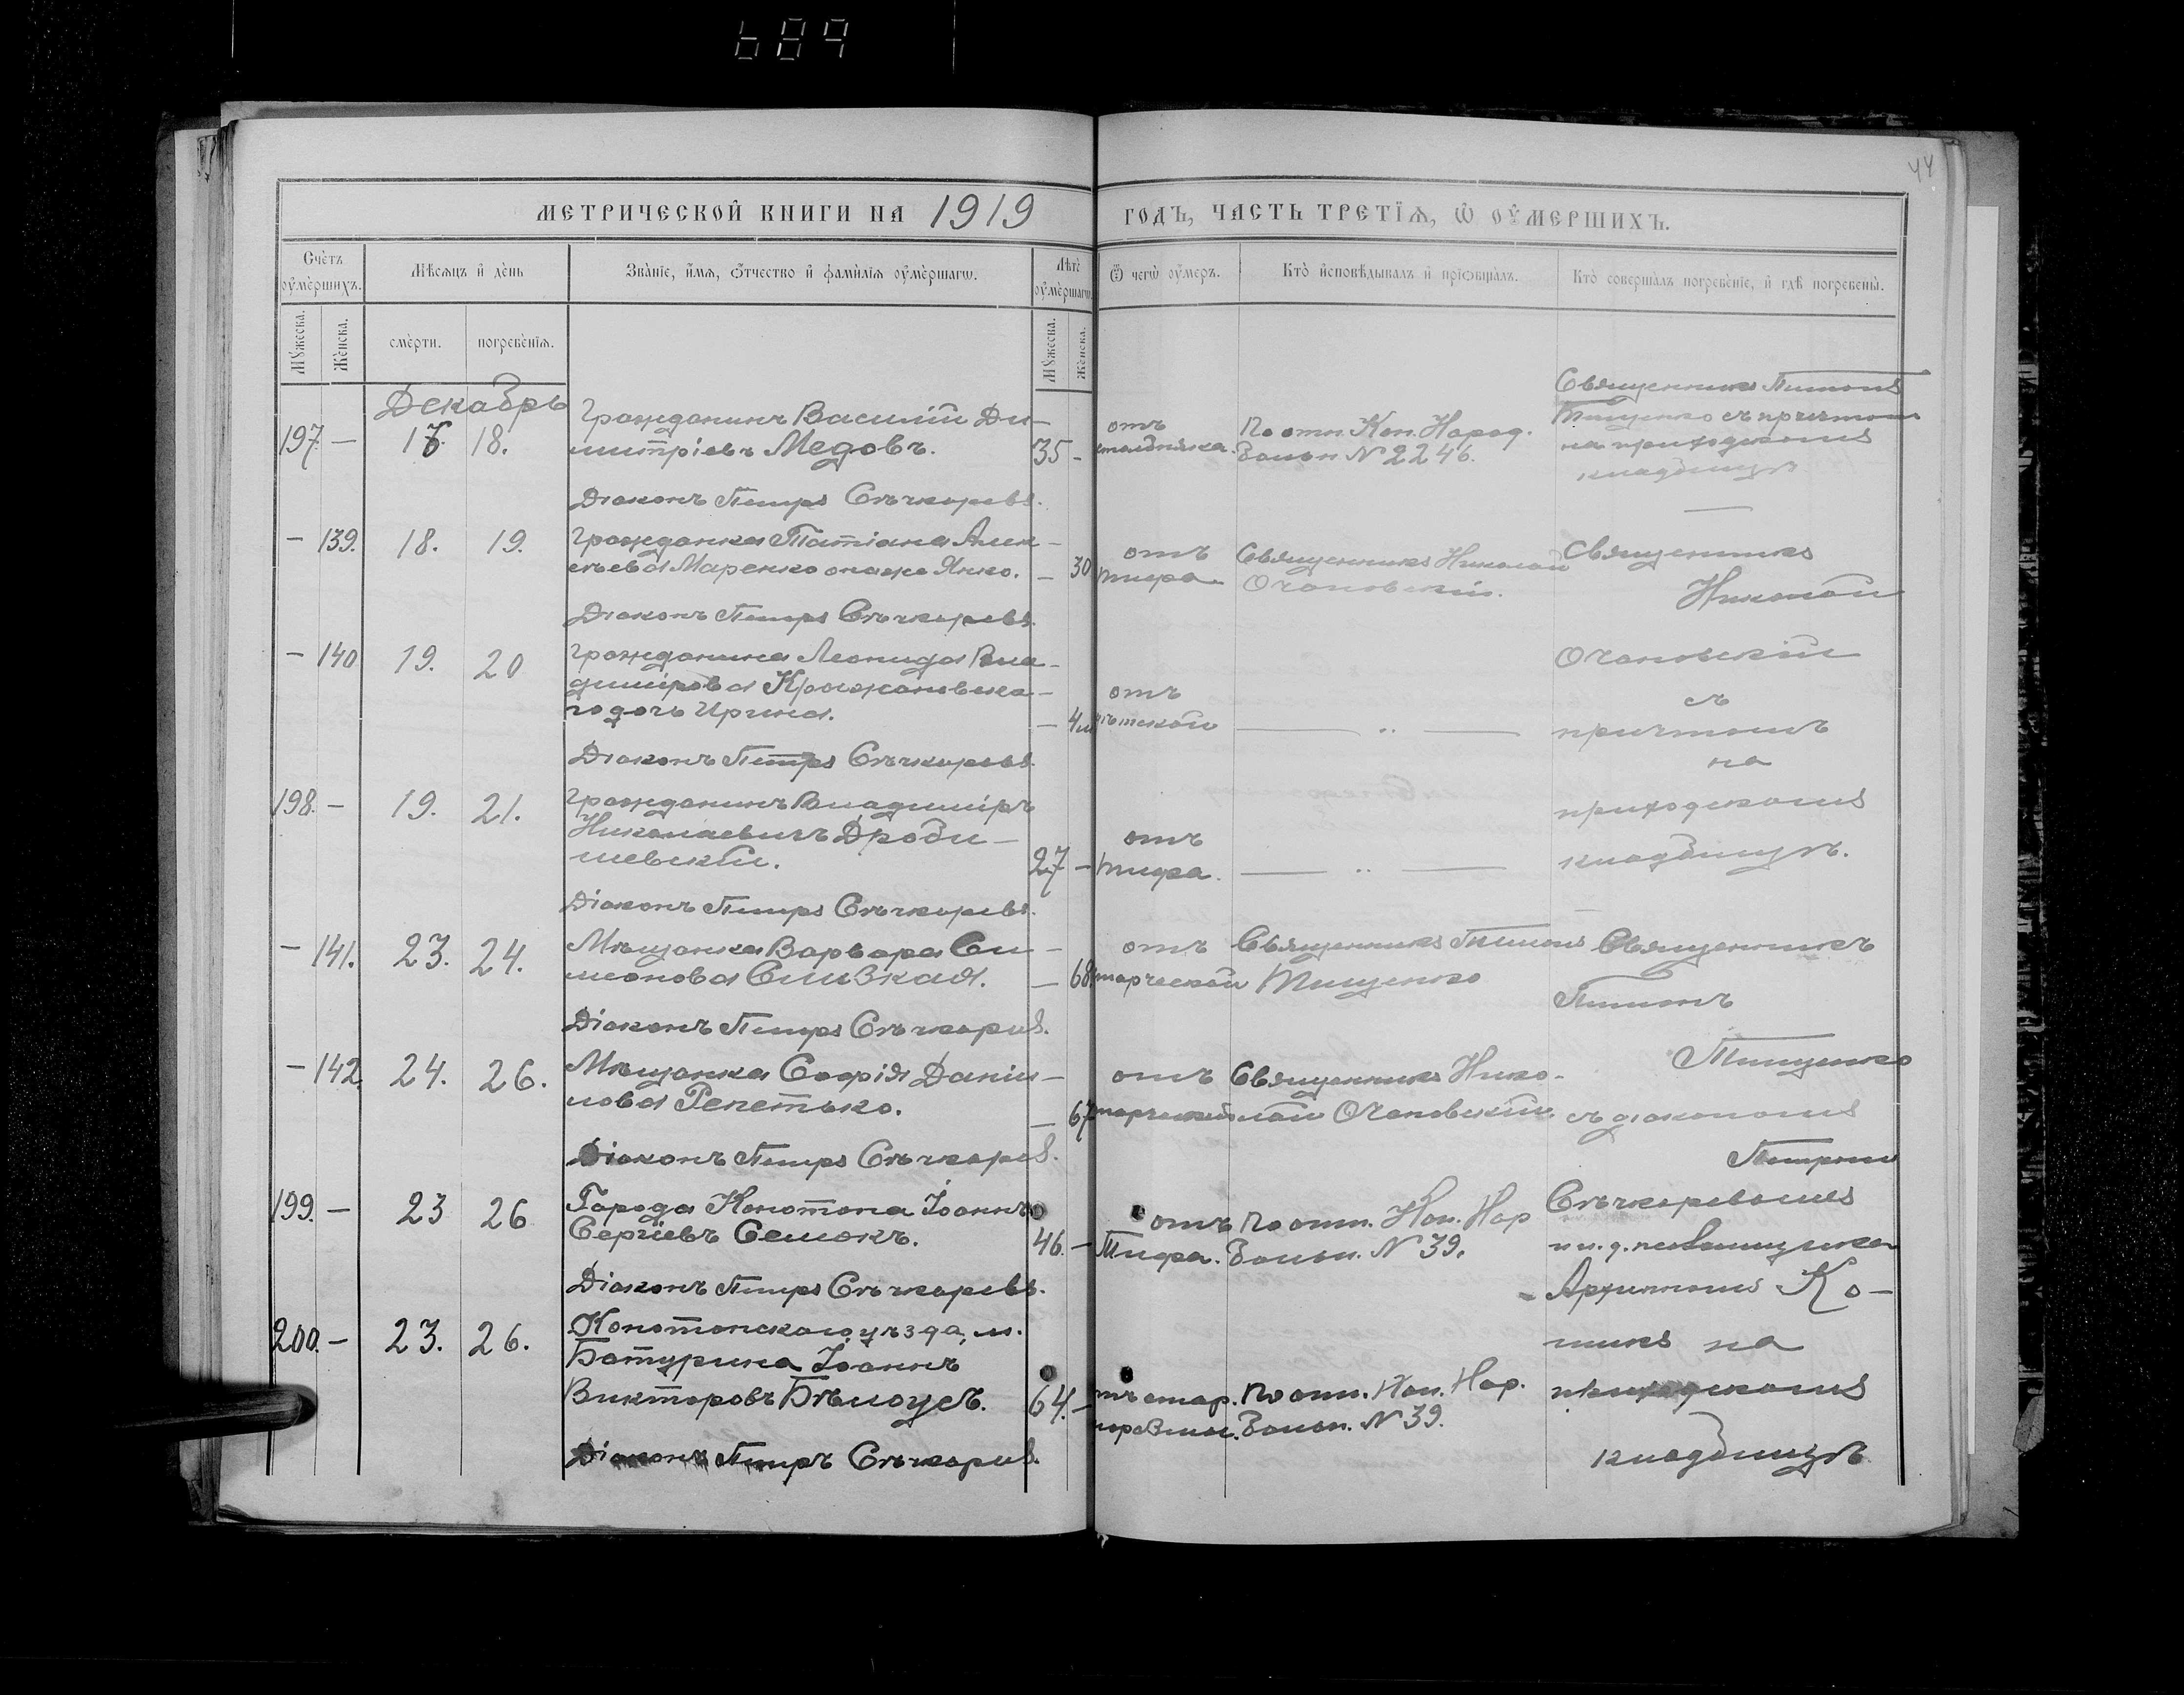 689
44
МЕТРИЧЕСКОЙ КНИГИ НА 1919 ГОДЪ, ЧАСТЬ ТРЕТІѦ, Ѡ ОУМЕРШИХЪ.
Счётъ оумершихъ.
Мѣсяцъ и день
Званіе, имя, отчество и фамилія оумершагѡ.
Лѣта оумершагѡ
Ѿ чегѡ оумеръ.
Кто исповѣдывалъ и пріобщалъ.
Кто совершалъ погребеніе, и гдѣ погребены.
Мужеска.
Женска.
смерти.
погребенія.
Мужеска.
Женска.
Декабрь
197 — 18.
Гражданинъ Василій Ди-
митріевъ Медовъ.
35 -
отъ
столбняка.
По отн. Кон. Народ.
Больн. № 2246.
Священникъ Тимонъ
Тищенко съ причтомъ
на приходскомъ
кладбищѣ
Діаконъ Петръ Сѣчкаревъ.
- 139. 18. 19.
Гражданка Татіана Алек-
сѣева Маренко она же Янко.
- 30
отъ
тифа
Священникъ Николай
Очановскій.
Священникъ
Николай
Діаконъ Петръ Сѣчкаревъ.
- 140 19. 20
гражданина Леонида Вла-
димірова Крыжановска-
го дочь Ирина.
- 4 м
отъ
дѣтской
— „ —
Очановскій
съ
причтомъ
на
Діаконъ Петръ Сѣчкаревъ.
198. - 19. 21.
гражданинъ Владиміръ
Николаевичъ Дроби-
шевскій.
27 -
отъ
тифа.
— „ —
приходскомъ
кладбищѣ.
Діаконъ Петръ Сѣчкаревъ.
- 141. 23. 24.
Мѣщанка Варвара Си-
меонова Слизкая.
- 68
отъ
старческой
Священникъ Тимонъ
Тищенко
Священникъ
Тимонъ
Діаконъ Петръ Сѣчкаревъ.
- 142 24. 26.
Мѣщанка Софія Даніи-
лова Репетько.
- 67
отъ
старческой
Священникъ Нико-
лай Очановскій.
Тищенко
съ діакономъ
Діаконъ Петръ Сѣчкаревъ.
Петромъ
199. - 23 26
Города Конотопа Іоаннъ
Сергіевъ Семокъ.
46. -
отъ
Тифа.
По отн. Кон. Нар
Больн. № 39.
Сѣчкаревымъ
и и. д. псаломщика
Діаконъ Петръ Сѣчкаревъ.
200. - 23. 26.
Конотопскаго уѣзда, м.
Батурина Іоаннъ
Викторовъ Бѣлоусъ.
64. -
отъ стар.
По отн. Кон. Нар.
Больн. № 39.
Ко-
на
приходскомъ
кладбищѣ
Діаконъ Петръ Сѣчкаревъ.